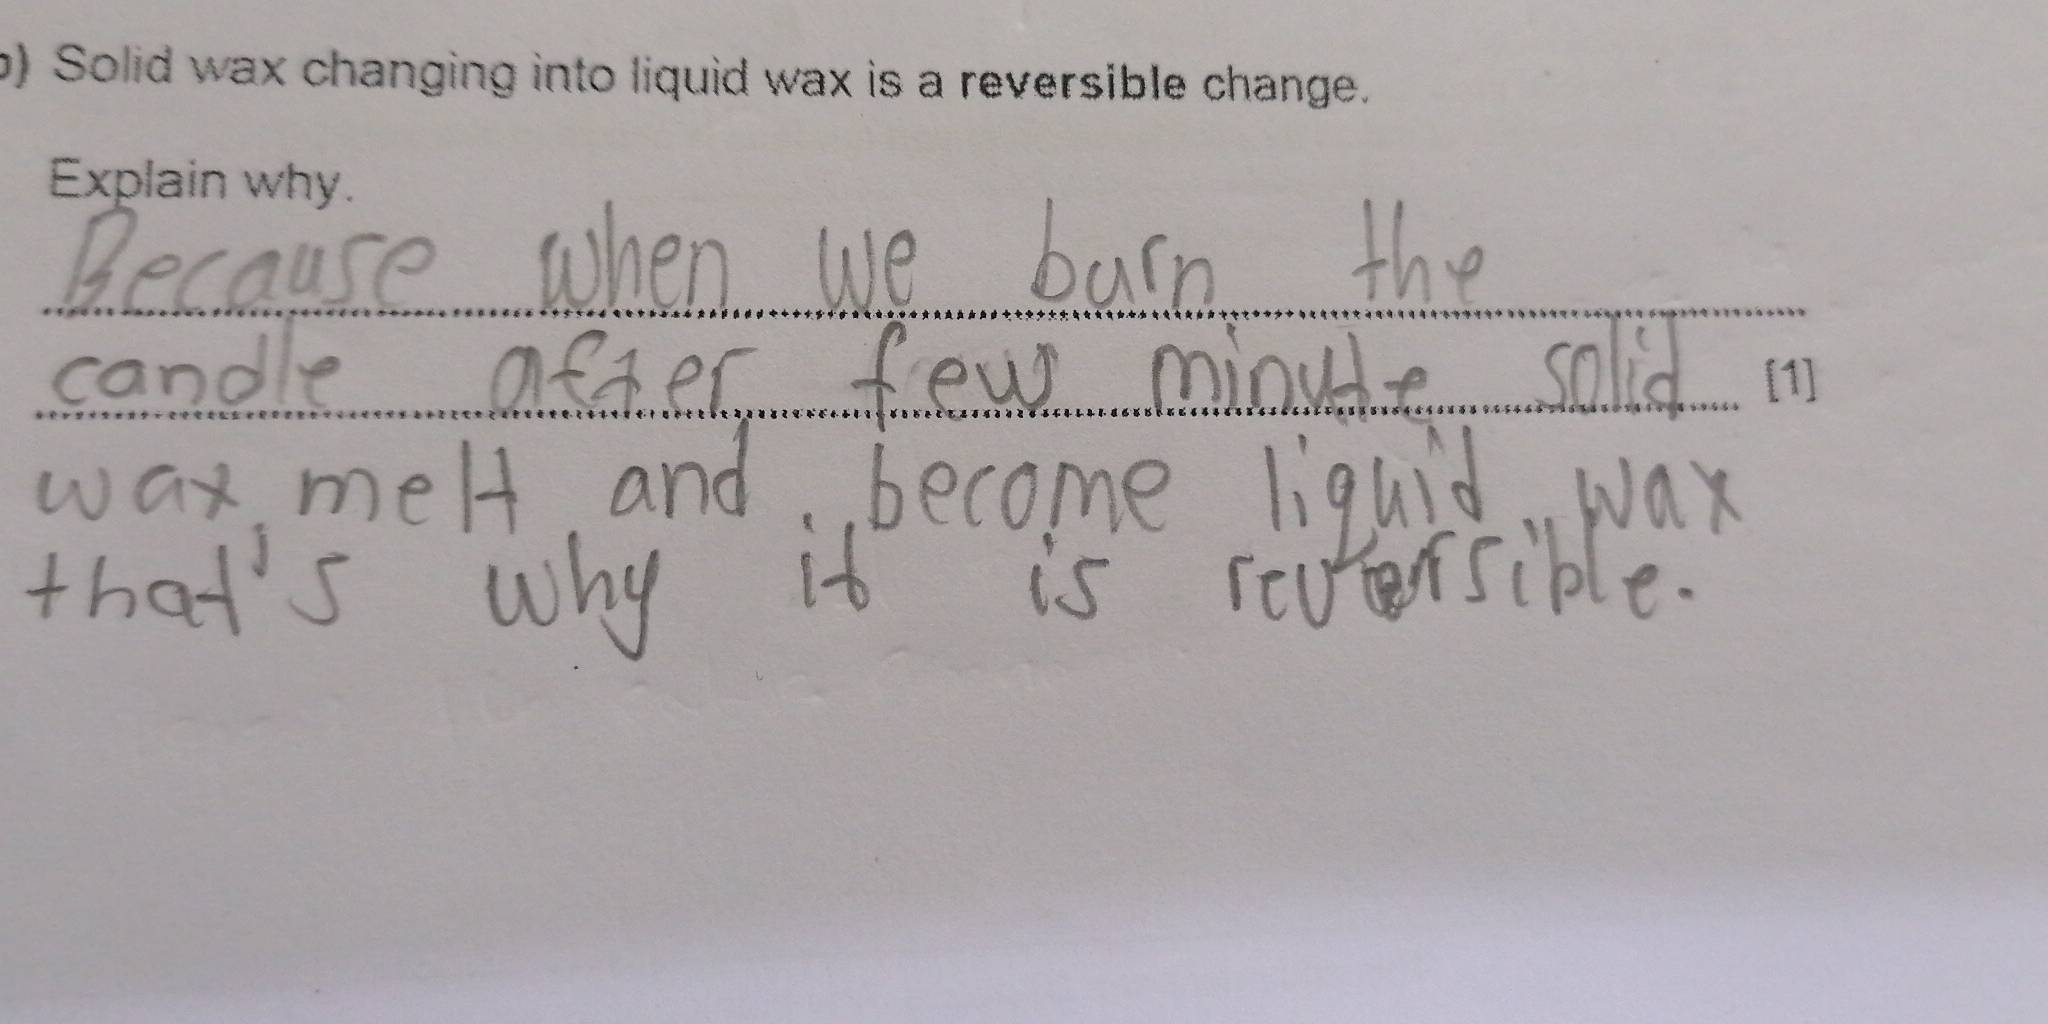 b) Solid wax changing into liquid wax is a reversible change.
Explain why.
Because when we burn the
candle after few minute solid [1]
wax melt and become liquid wax
that's why it is reversible.